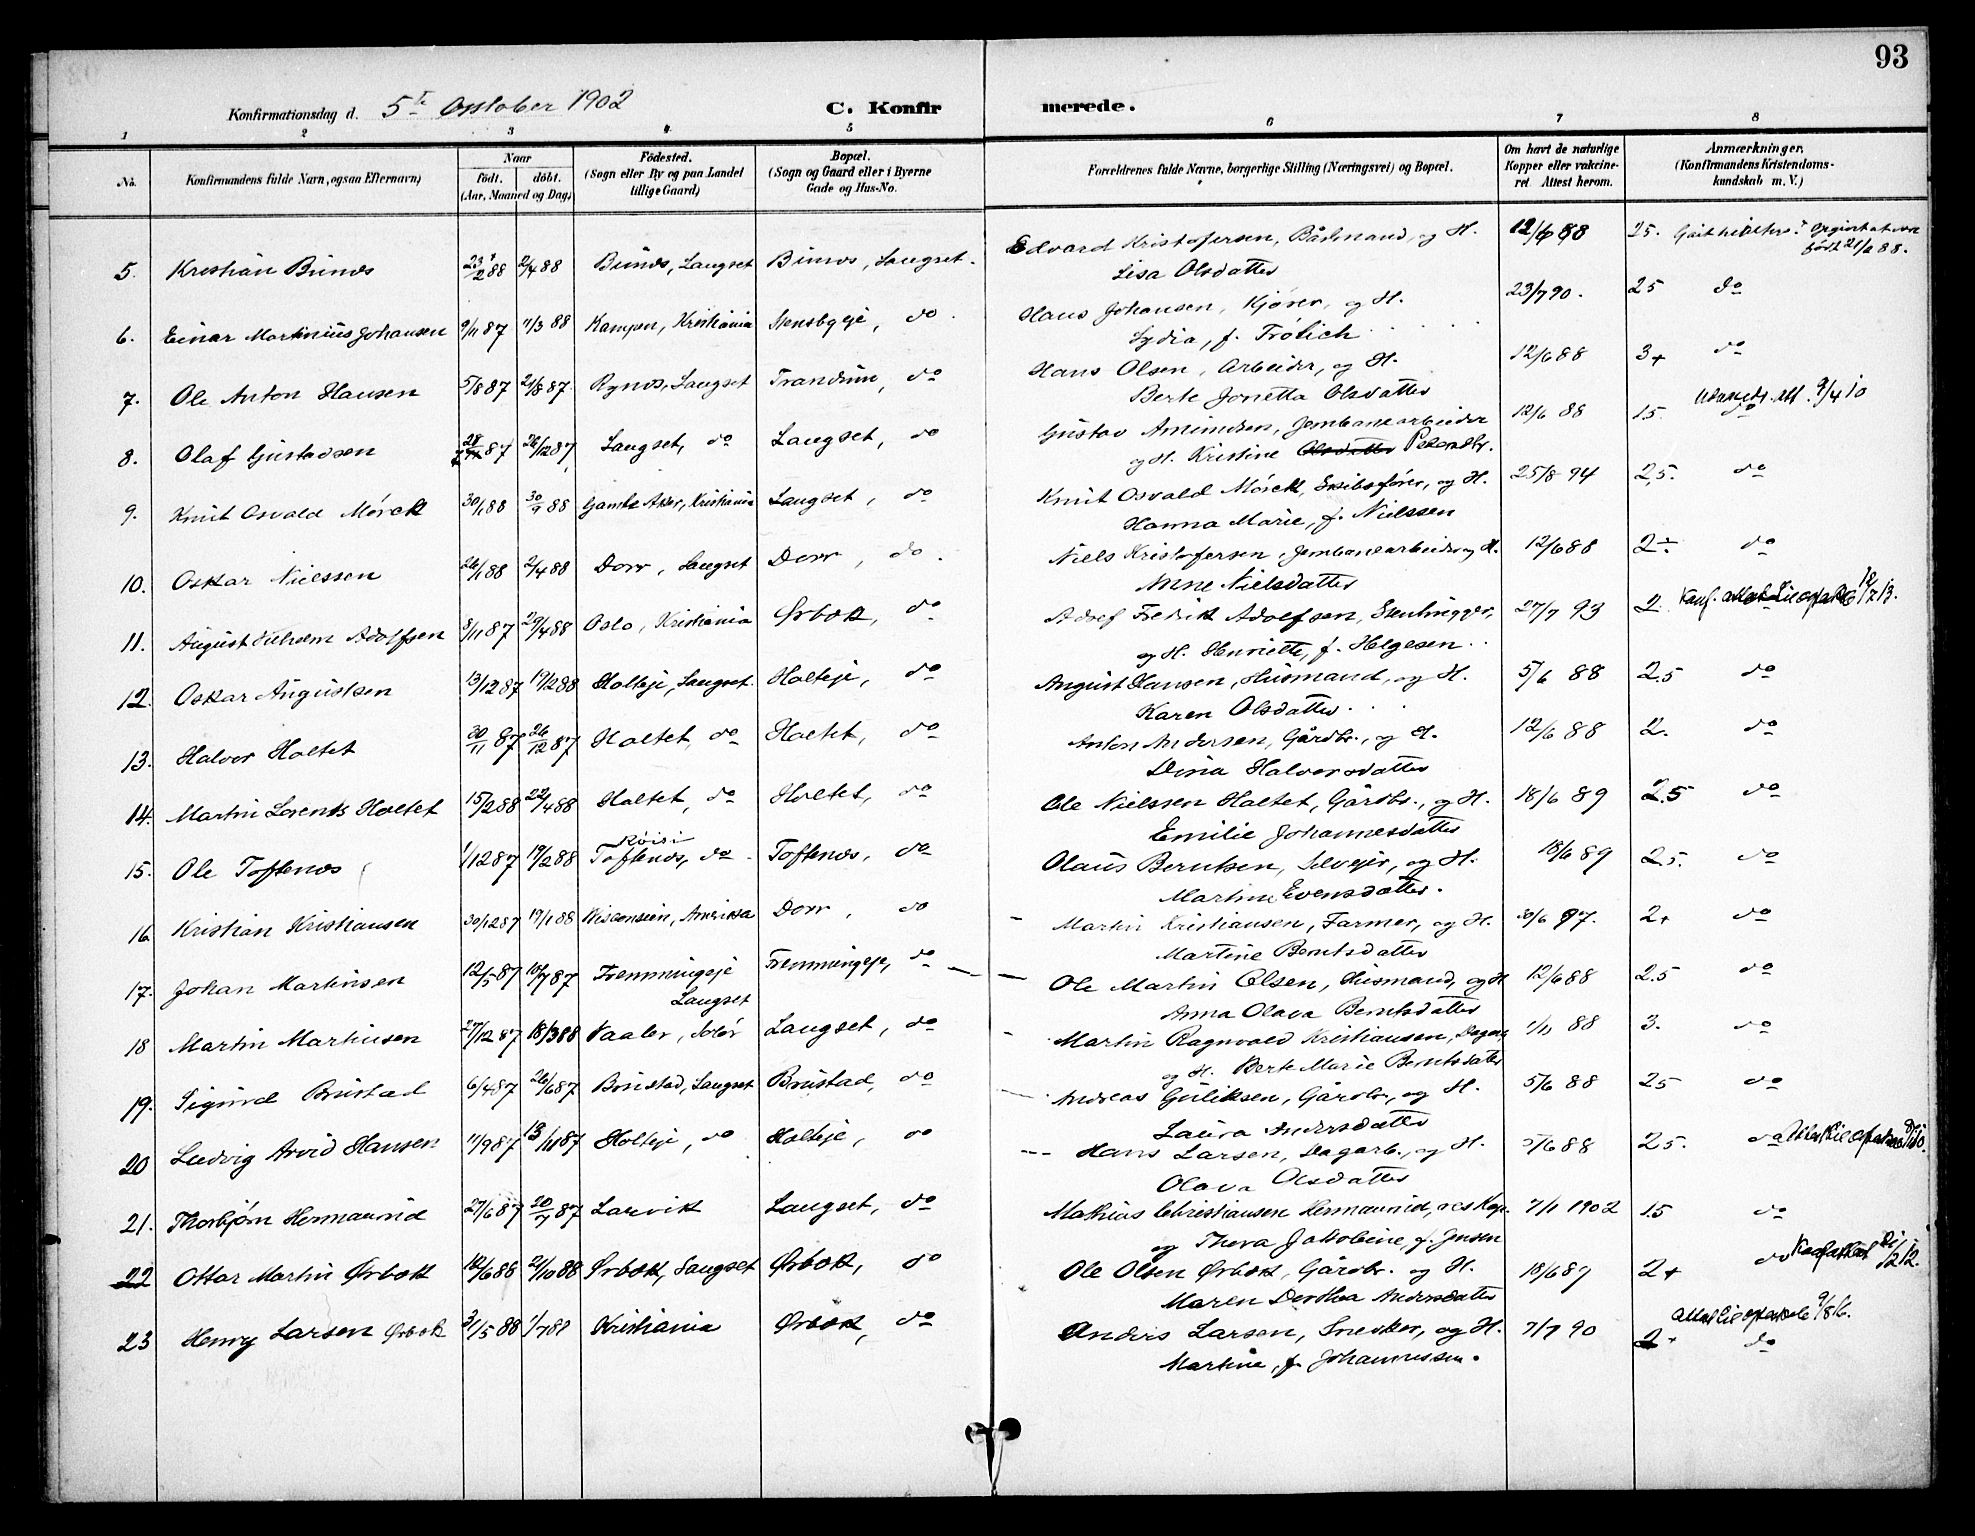 93
Konfirmationsdag d. 5te October 1902 C. Konfir merede.
1 2 3 4 5 6 7 8
No. Konfirmandens fulde Navn, ogsaa Efternavn) Naar født. døbt. (Aar, Maaned og Dag) Fødested. (Sogn eller By og paa Landet tillige Gaard) Bopæl. (Sogn og Gaard eller i Byerne Gade og Hus-No. Forældrenes fulde Navne, borgerlige Stilling (Næringsvei) og Bopæl. Om havt de naturlige Kopper eller vakcineret Attest herom. Anmærkninger. (Konfirmandens Kristendomskundskab m. V.)
5. Kristian Bunæs 2/4 88 Bunæs, Langset Bunæs, Langset. Edvard Kristofersen, Baadmand, og H. 12/6 88 25.
Lisa Olsdatter
6. Einar Martinius Johansen 9/11 87 11/3 88 Kampen, Kristiania Stensbyeje, do Hans Johansen, Kjører, og H. 23/7 90. 25 do
Lydia, f. Frølich
7. Ole Anton Hansen 5/8 87 21/8 87. Rynæs, Langset Trandum, do Hans Olsen, Arbeider, og H. 12/6 88 3+ do
Berte Jonetta Olsdatter
8. Olaf Gustavsen 26/12 87 Langset, do Langset, do Gustav Amundsen, Jernbanearbeider 12/6 88 15 do
og H. Kristine Olsdatter Petersdtr.
9. Knut Osvald Mørck 30/1 88 30/9 88 Gamle Aker, Kristiania Langset, do Knut Osvald Mørck, Skibsfører, og H. 25/8 94 2,5. do
Hanna Marie, f. Nielssen
10. Oskar Nielssen 26/1 88 2/4 88 Dorr, Langset Dorr, do Niels Kristofersen, Jernbanearbeider og H. 12/6 88 2÷ do
Anne Nielsdatter
11. August Vilhelm Adolfsen 8/11 87 29/4 88 Oslo, Kristiania Ørbæk, do Adolf Fredrik Adolfsen, Stenhugger, 27/7 93 2.
og H. Henriette, f. Helgesen
12. Oskar Augustsen 13/12 87 19/2 88 Holteje, Langset. Holteje, do August Hansen, Husmand, og H. 5/6 88 2.5 do
Karen Olsdatter
13. Halvor Holtet 20/11 87 26/12 87 Holtet, do Holtet, do Anton Andersen, Gårdbr., og H. 12/6 88 2. do
Dina Halvorsdatter
14. Martin Lorents Holtet 15/2 88 22/4 88 Holtet, do Holtet, do Ole Nielssen Holtet, Gårdbr., og H. 18/6 89 2.5 do
Emilie Johannesdatter
15. Ole Toftenæs 1/12 87 19/2 88 Toftenæs, do Toftenæs, do Olaus Berntsen, Selvejer, og H. 18/6 89 2.5. do
Martine Evensdatter.
16. Kristian Kristiansen 30/12 87 19/1 88 Wisconsin, Amerika Dorr, do Martin Kristiansen, Farmer, og H. 30/6 97. 2+ do
Martine Berntsdatter
17. Johan Martinsen 12/5 87 10/7 87 Fremmingeje Langset Fremmingeje, do Ole Martin Olsen, Husmand, og H 12/6 88 2.5 do
Anna Olava Berntsdatter
18 Martin Martinsen 27/12 87 18/3 88 Vaaler, Solør Langset, do Martin Ragnvald Kristiansen, Dagarb. 1/11 88 3. do
og H. Berte Marie Berntsdatter
19. Sigurd Brustad 6/4 87 26/6 87 Brustad, Langset Brustad, do Andreas Guliksen, Gårdbr., og H. 5/6 88 25 do
Laura Andersdatter
20 Ludvig Arvid Hansen 11/9 87 13/11 87 Holteje, do Holteje, do Hans Larsen, Dagarb., og H. 5/6 88 2 5. do
Olava Olsdatter
21. Thorbjørn Hermanrud 27/6 87 Larvik Langset, do Mathias Christiansen Hermanrud, 7/1 1902 1.5 do
og Thora Jakobine, f. Jensen
22 Ottar Martin Ørbæk 21/10 88 Ørbæk, Langset Ørbæk, do Ole Olsen Ørbæk, Gårdbr. og H. 18/6 89 2+ do
Maren Dorthea Andersdatter
23 Henry Larsen Ørbæk 31/5 88 Kristiania Ørbæk, do Anders Larsen, Snedker, og H. 7/7 90 2+ do
Martine, f. Johannessen.